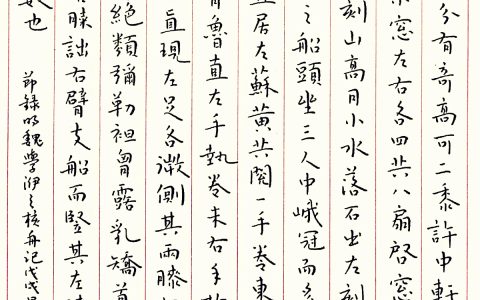 分有奇高可二黍許中軒
窓左右各四共八扇啓窓
刻山高月小水落石出左刻
之船頭坐三人中峨冠而多
居左蘇黄共閱一手卷東
魯直左手執卷末右手指
直現左足各微側其兩膝相
絶類彌勒袒胷露乳矯首
膝詘右臂支船而竪其左
也
節録明魏學洢之核舟記戊戌